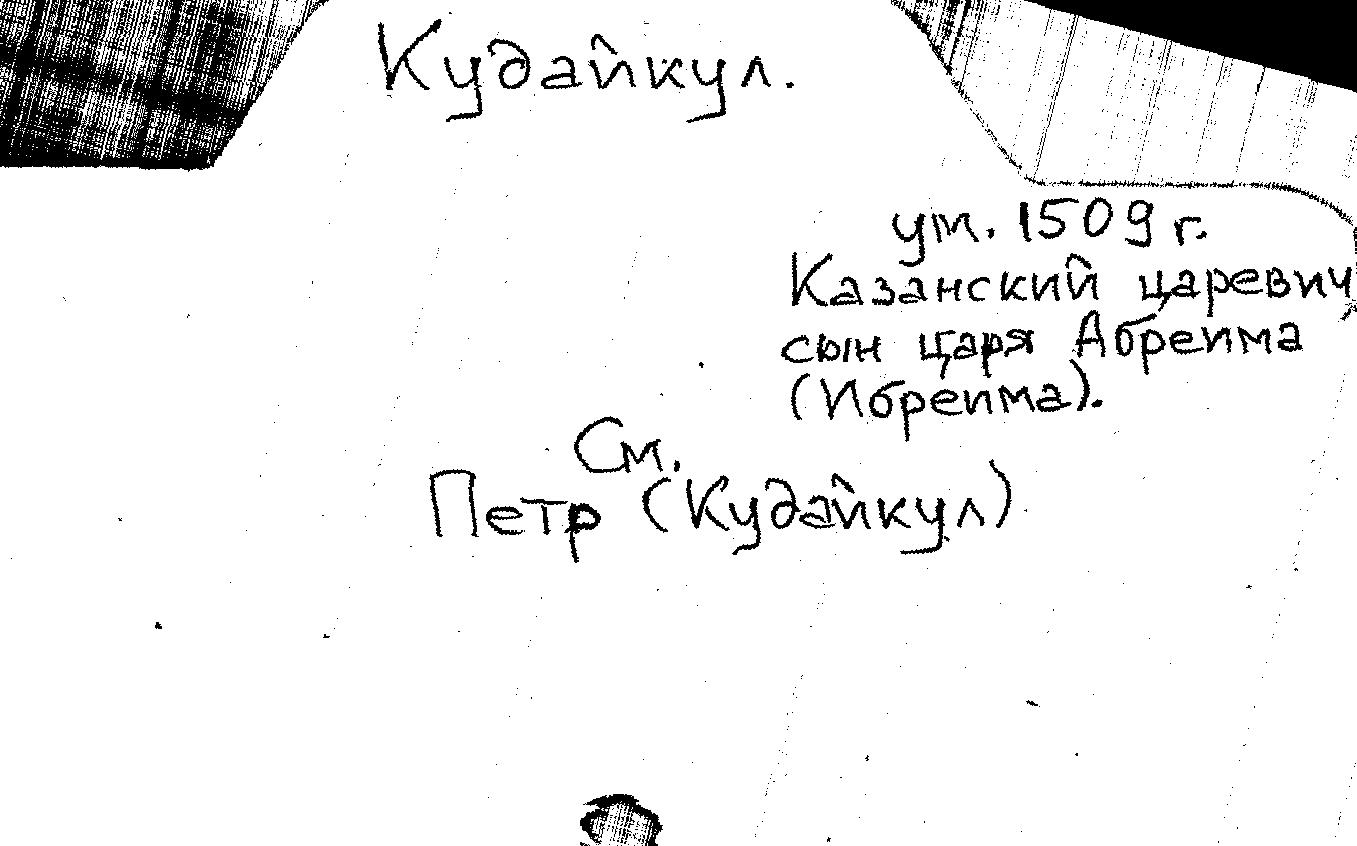 Кудайкул.
ум. 1509 г.
Казанский царевич,
сын царя Абреима
(Ибреима).
См.
Петр (Кудайкул)